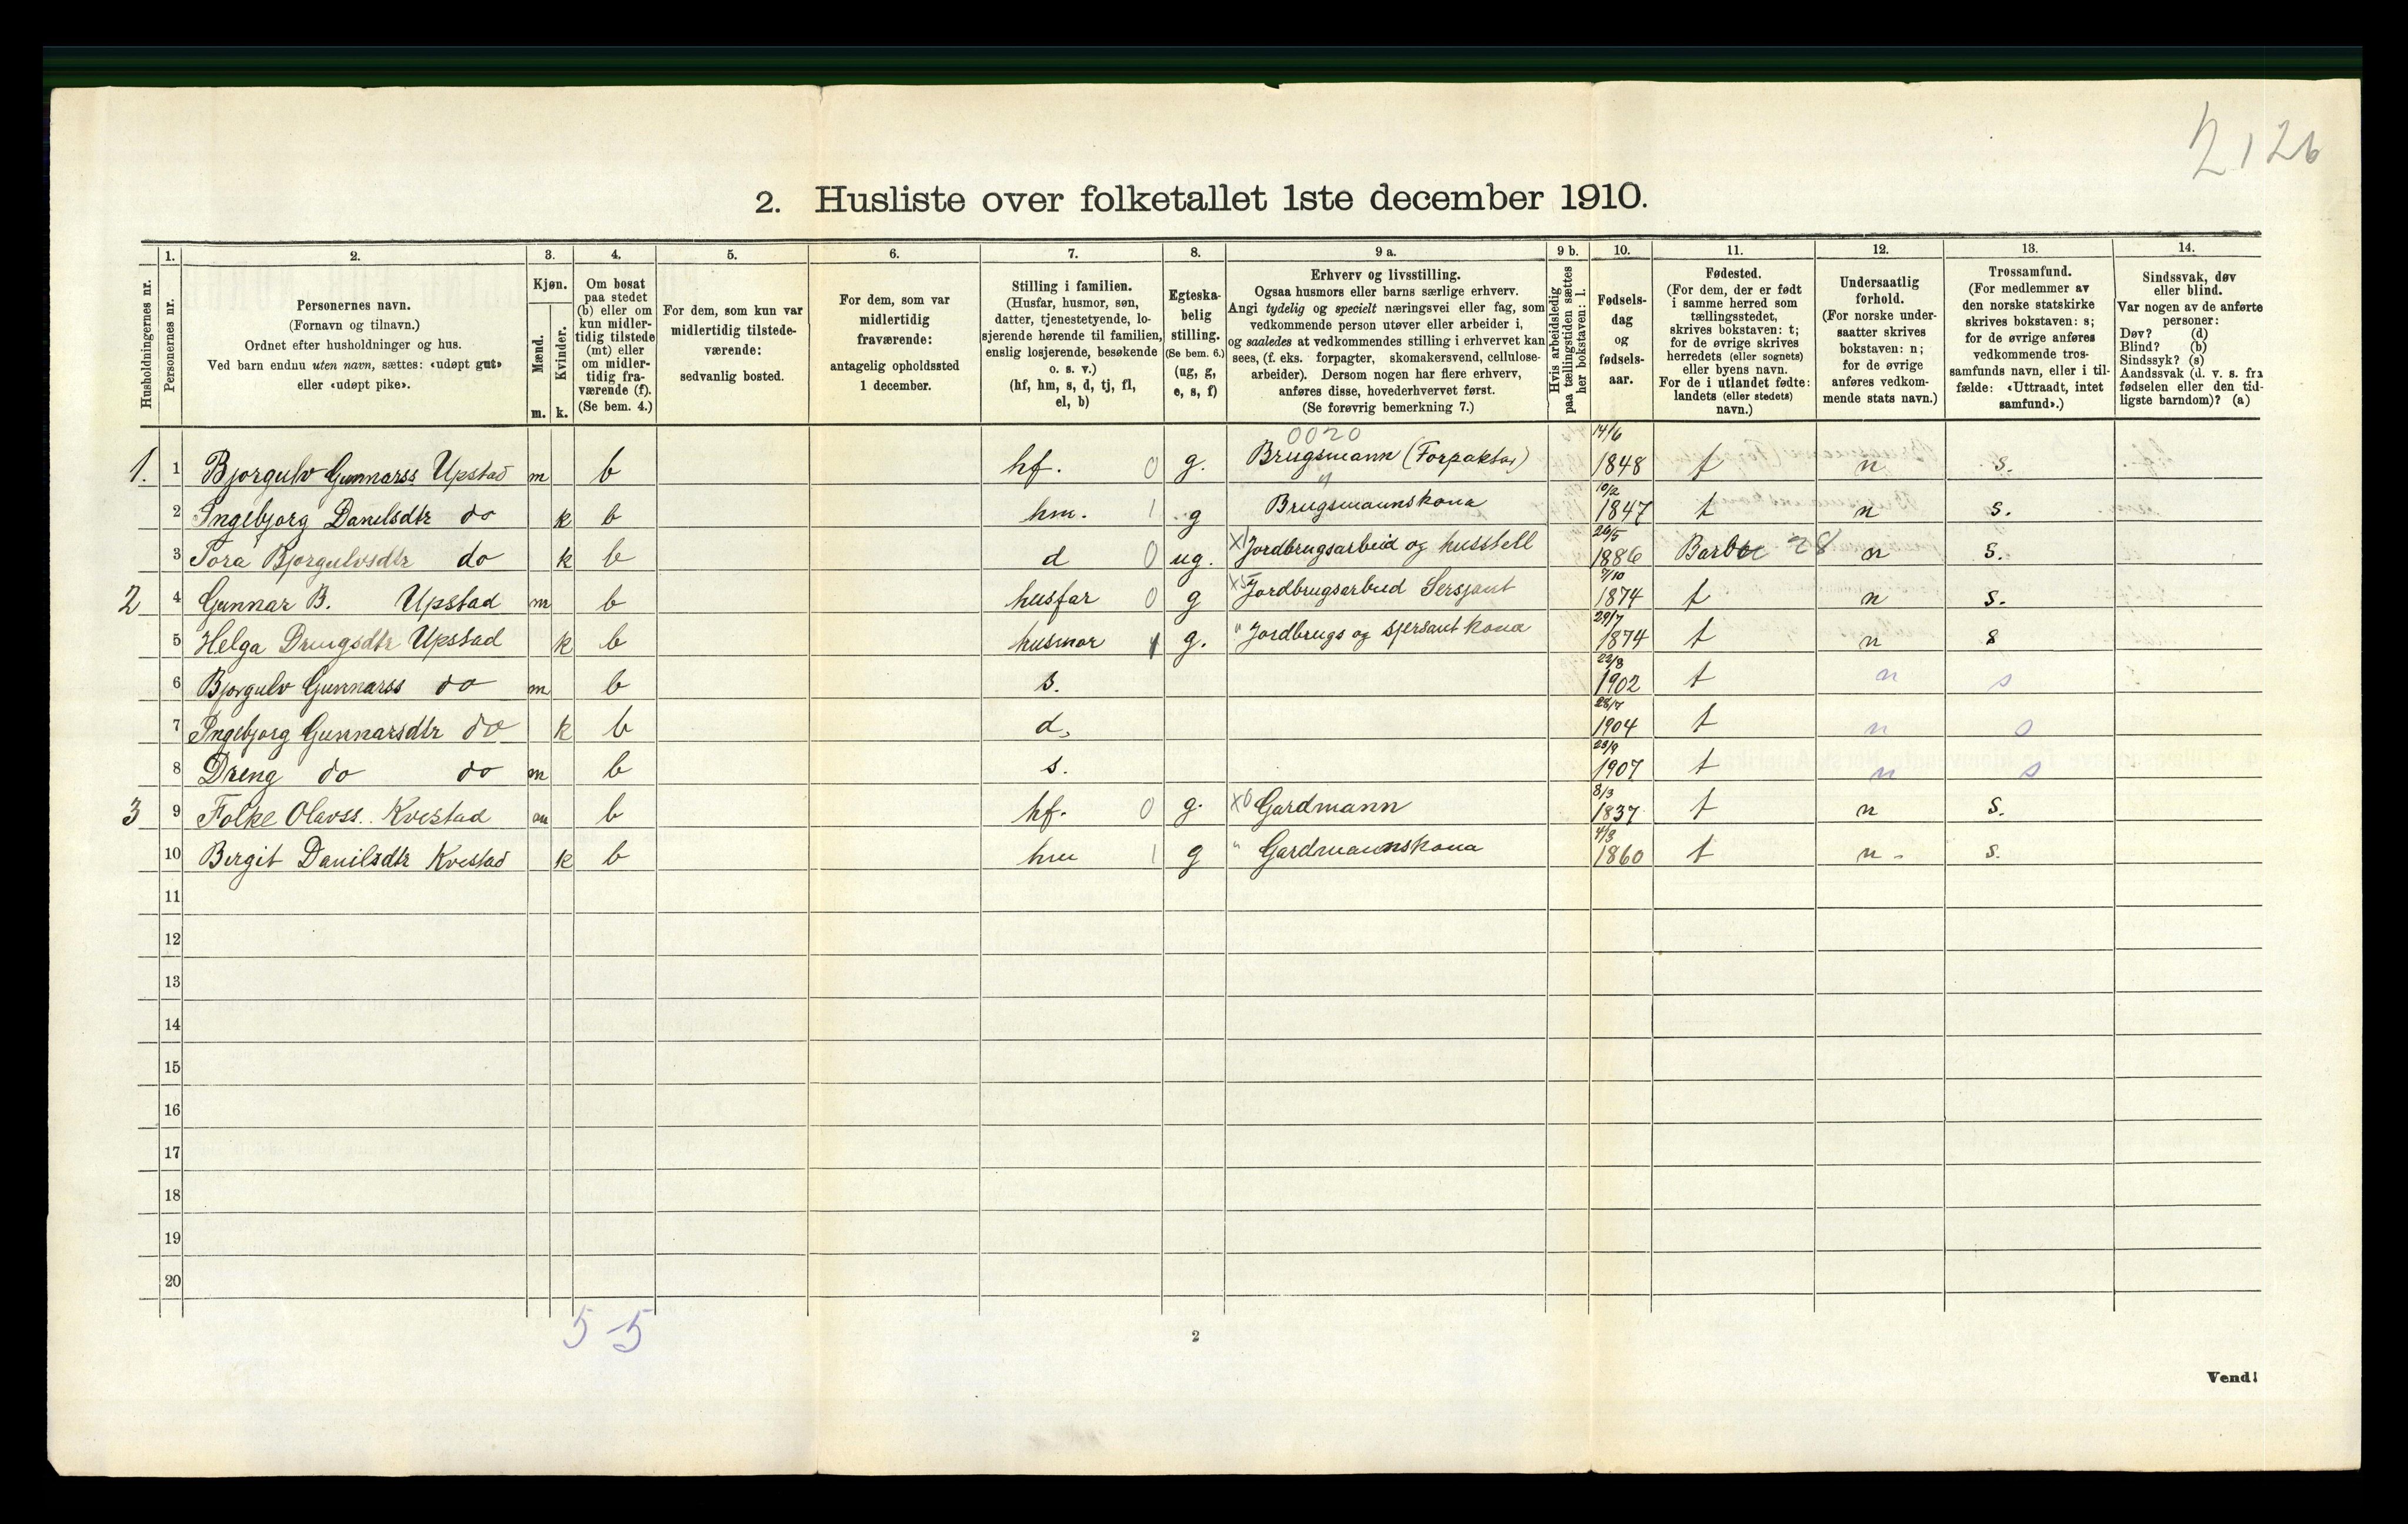 2126
2. Husliste over folketallet 1ste december 1910.
Husholdningernes nr.
1.
Personernes nr.
2.
Personernes navn.
(Fornavn og tilnavn.)
Ordnet efter husholdninger og hus.
Ved barn endnu uten navn, sættes: «udøpt gut»
eller «udøpt pike».
3.
Kjøn.
Mænd.
Kvinder.
m. k.
4.
Om bosat
paa stedet
(b) eller om
kun midler-
tidig tilstede
(mt) eller
om midler-
tidig fra-
værende (f).
(Se bem. 4.)
5.
For dem, som kun var
midlertidig tilstede-
værende:
sedvanlig bosted.
6.
For dem, som var
midlertidig
fraværende:
antagelig opholdssted
1 december.
7.
Stilling i familien.
(Husfar, husmor, søn,
datter, tjenestetyende, lo-
sjerende hørende til familien,
enslig losjerende, besøkende
o. s. v.)
(hf, hm, s, d, tj, fl,
el, b)
8.
Egteska-
belig
stilling.
(Se bem. 6.)
(ug, g,
e, s, f)
9 a.
Erhverv og livsstilling.
Ogsaa husmors eller barns særlige erhverv.
Angi tydelig og specielt næringsvei eller fag, som
vedkommende person utøver eller arbeider i,
og saaledes at vedkommendes stilling i erhvervet kan
sees, (f. eks. forpagter, skomakersvend, cellulose-
arbeider). Dersom nogen har flere erhverv,
anføres disse, hovederhvervet først.
(Se forøvrig bemerkning 7.)
9 b.
Hvis arbeidsledig
paa tællingstiden sættes
her bokstaven: l.
10.
Fødsels-
dag
og
fødsels-
aar.
11.
Fødested.
(For dem, der er født
i samme herred som
tællingsstedet,
skrives bokstaven: t;
for de øvrige skrives
herredets (eller sognets)
eller byens navn.
For de i utlandet fødte:
landets (eller stedets)
navn.)
12.
Undersaatlig
forhold.
(For norske under-
saatter skrives
bokstaven: n;
for de øvrige
anføres vedkom-
mende stats navn.)
13.
Trossamfund.
(For medlemmer av
den norske statskirke
skrives bokstaven: s;
for de øvrige anføres
vedkommende tros-
samfunds navn, eller i til-
fælde: «Uttraadt, intet
samfund».)
14.
Sindssvak, døv
eller blind.
Var nogen av de anførte
personer:
Døv? (d)
Blind? (b)
Sindssyk? (s)
Aandssvak (d. v. s. fra
fødselen eller den tid-
ligste barndom)? (a)
0020 14/6
1. 1 Bjorgulv Gunnarss Upstad m b hf. 0 g. Brugsmann (Forpaktar) 1848 t n s.
" 10/2
2 Ingebjorg Danilsdtr do k b hm. 1 g Brugsmannskona 1847 t n s.
26/5
3 Tora Bjorgulvsdtr do k b d 0 ug. X1 Jordbrugsarbeid og husstell 1886 Barbu 28 n s.
7/10
2 4 Gunnar B. Upstad m b husfar 0 g X5 Jordbrugsarbeid Sersjant 1874 t n s.
29/7
5 Helga Drengsdtr Upstad k b husmor 1 g. " Jordbrugs og sjersant kona 1874 t n s
22/8
6 Bjorgulv Gunnarss do m b s. 1902 t n s
28/7
7 Ingebjorg Gunnarsdtr do k b d, 1904 t n s
23/9
8 Dreng do do m b s. 1907 t n s
8/3
3 9 Folke Olavss. Kvestad m b hf. 0 g. X0 Gardmann 1837 t n s.
4/3
10 Bergit Danilsdtr Kvestad k b hm 1 g " Gardmannskona 1860 t n. s.
11
12
13
14
15
16
17
18
19
20
5-5
2
Vend!